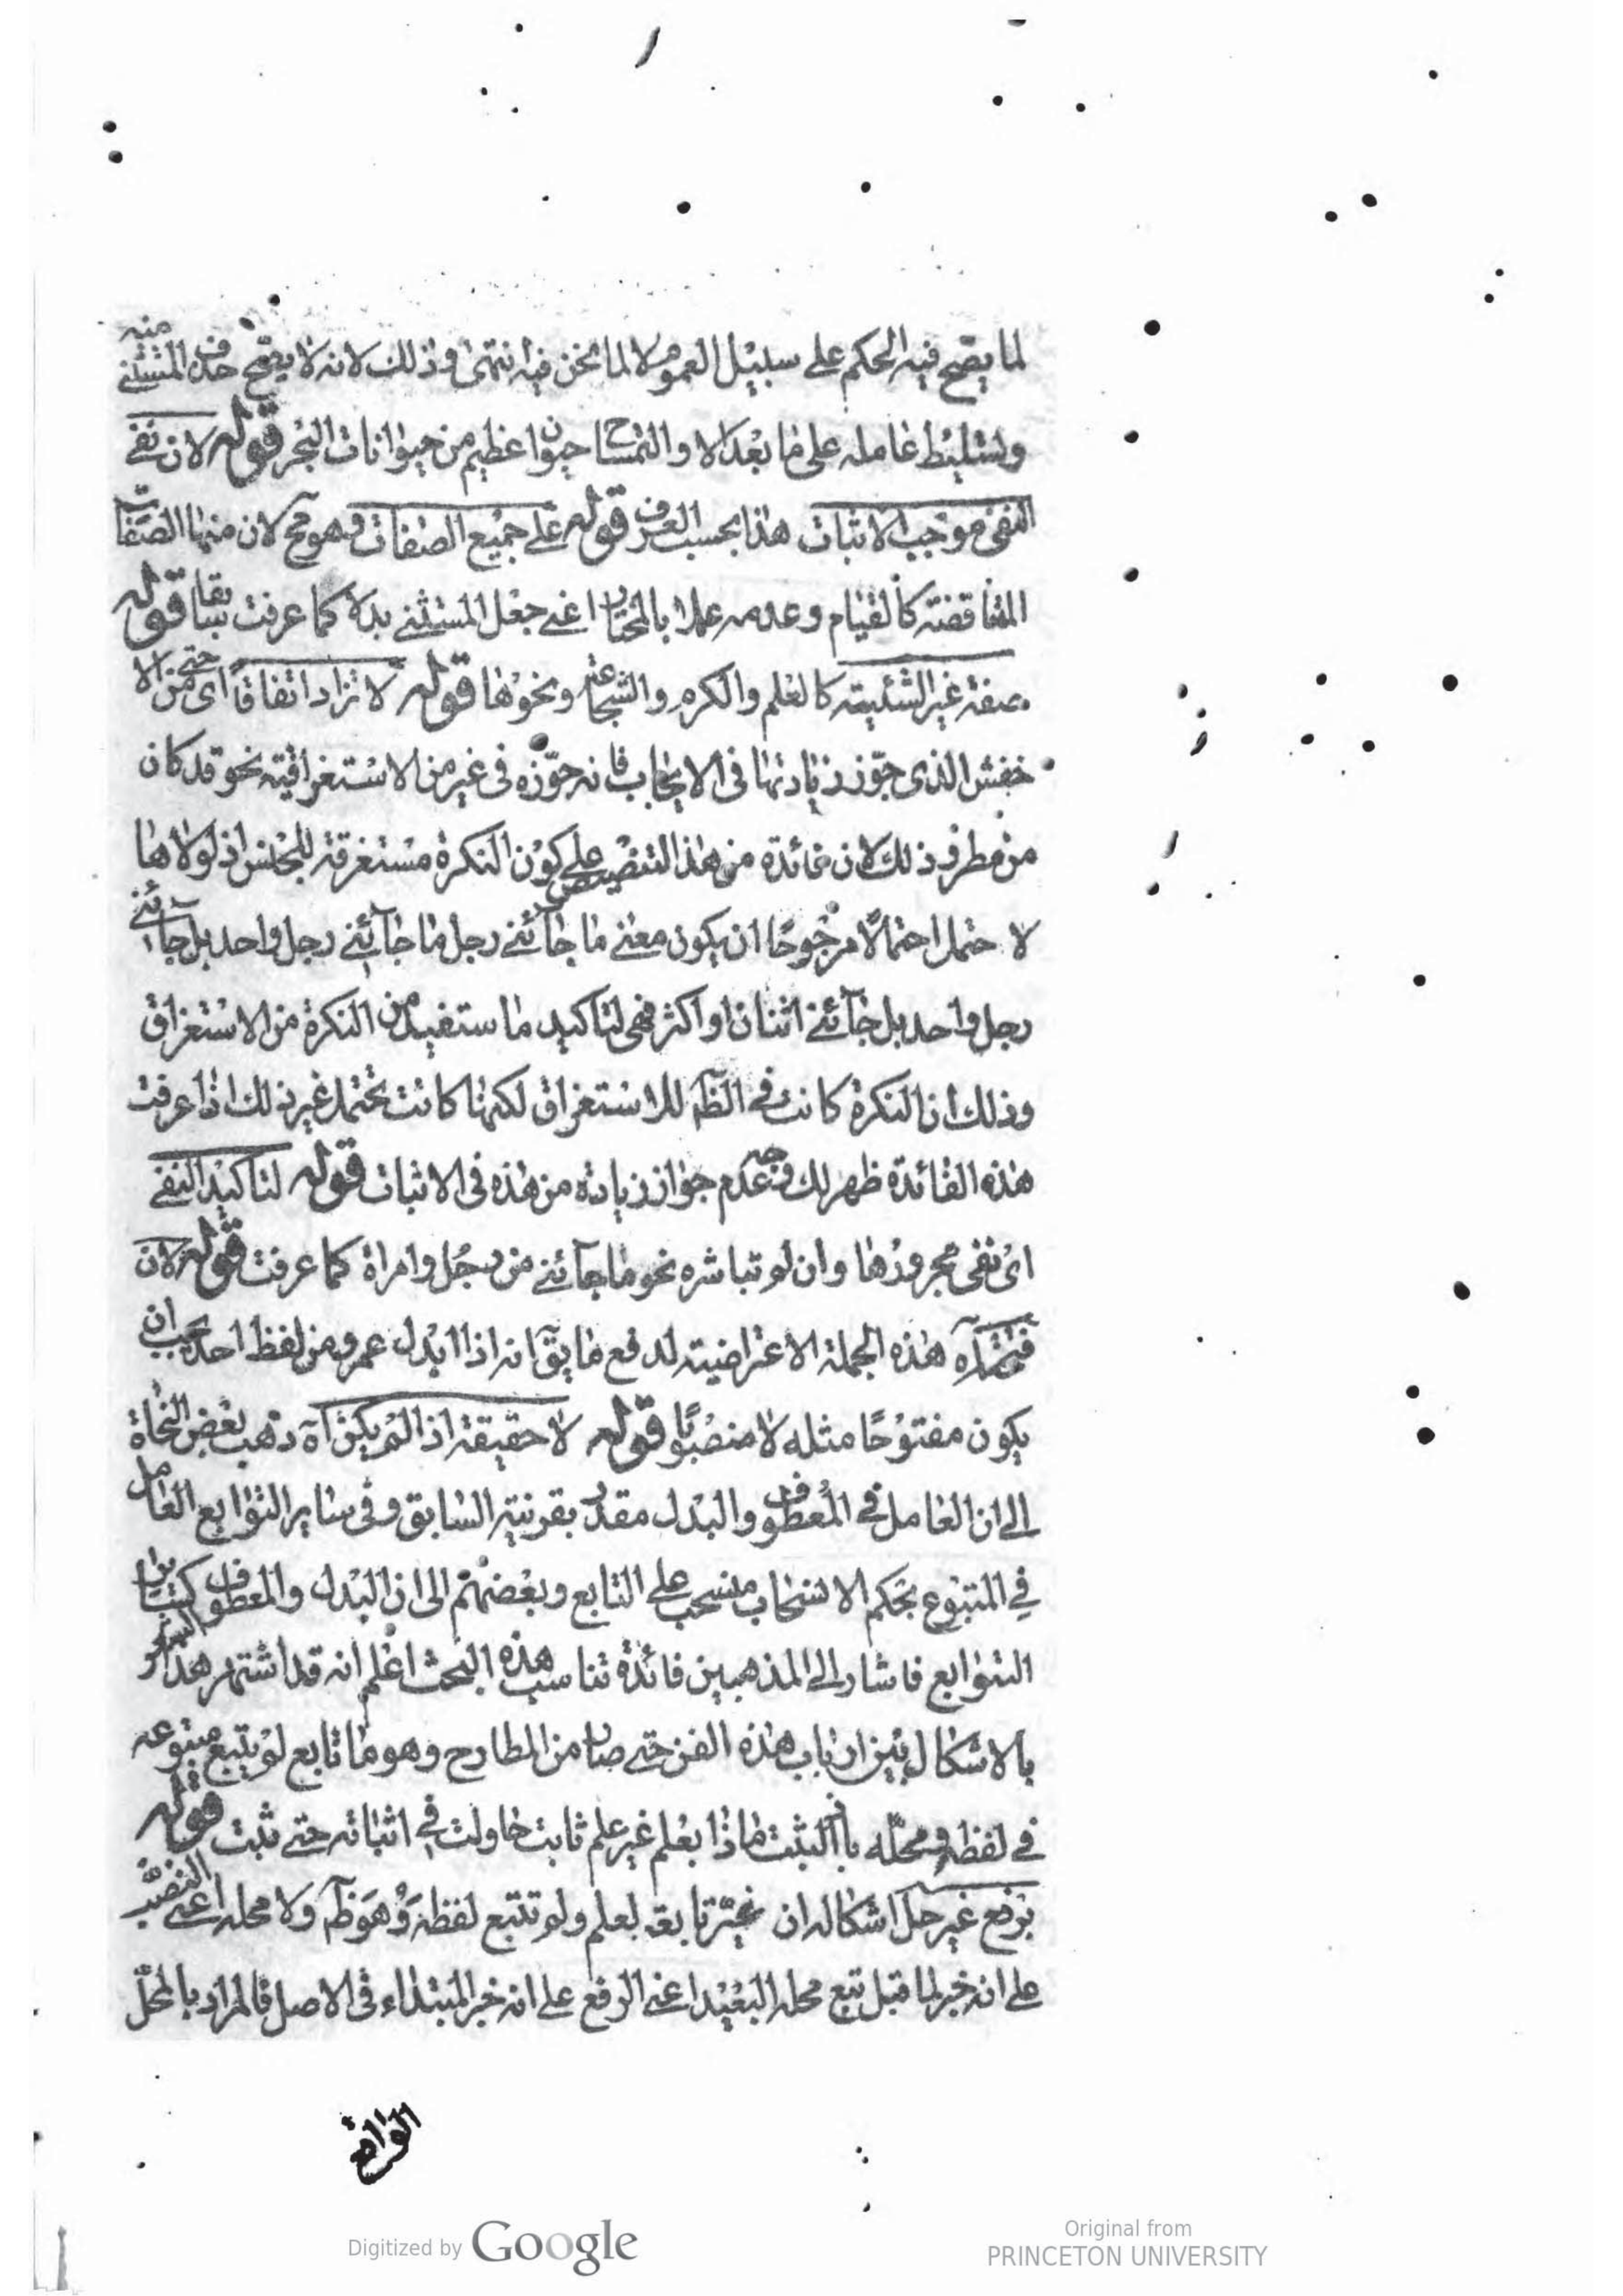 لما يصح فيه الحكم على سبيل العموم لا لما نحن فيه انتهى وذلك لانه لا يصح حذف المستثنى منه
وتسليط عامله على ما بعد الا والتمساح حيوان عظيم من حيوانات البحر قوله لان نفى
النفى موجب الاثبات هذا بحسب العرف قوله على جميع الصفات وهو مح لان منها الصفات
المتناقضة كالقيام وعدمه عملا بالمختار اعنى جعل المستثنى بدلا كما عرفت سابقا قوله
صفة غير الشيئية كالعلم والكرم والشجاعة ونحوها قوله لا تزاد اتفاقا اى حتى من الا
خفش الذى جوّز زيادتها فى الايجاب فانه جوّزه فى غير من الاستغراقية نحو قد كان
من مطر وذلك لان فائدة من هذا التنصيص على كون النكرة مستغرقة للجنس اذ لولاها
لا حتمل احتمالًا مرجوحًا ان يكون معنى ما جآئنى رجل ما جآئنى رجل واحد بل جآئنى
رجل واحد بل جآئنى اثنان او اكثر فهى لتاكيد ما استفيد من النكرة من الاستغراق
وذلك ان النكرة كانت فى الظآ للاستغراق لكنها كانت تحتمل غير ذلك اذا عرفت
هذه الفائدة ظهر لك وجه عدم جواز زيادة من هذه فى الاثبات قوله لتاكيد النفى
اى نفى مجرورها وان لم تباشره نحو ما جآئنى من رجل وامراة كما عرفت قوله لان
هذه الجملة الاعتراضية لدفع ما يقآ انه اذا ابدل عمرو من لفظ احد يجب ان
يكون مفتوحًا مثله لا منصوبًا قوله لا حقيقة اذا لم يكن آه ذهب بعض النحاة
الى ان العامل فى المعطوف والبدل مقدر بقرنية السابق وفى ساير التوابع العامل
فى المتبوع بحكم الانسحاب منسحب على التابع وبعضهم الى ان البدل والمعطوف كساير
التوابع فاشار الى المذهبين فائدة تناسب هذه البحث اعلم انه قد اشتهر هذا
بالاشكال بين ارباب هذه الفن حتى صار من المطارح وهو ما تابع لم يتبع متبوعه
فى لفظه ومحلّه ماذا بعلم غير علم ثابت حاولت فى اثباته حتى ثبت قوله
برفع غير حل اشكاله ان غير تابع لعلم ولم تتبع لفظه وهو ظآ ولا محله اعنى النصب
على انه خبر لما قبل تبع محله البعيد اعنى الرفع على انه خبر المبتداء فى الاصل فالمراد بالمحلّ
الواقع
Digitized by Google
Original from
PRINCETON UNIVERSITY